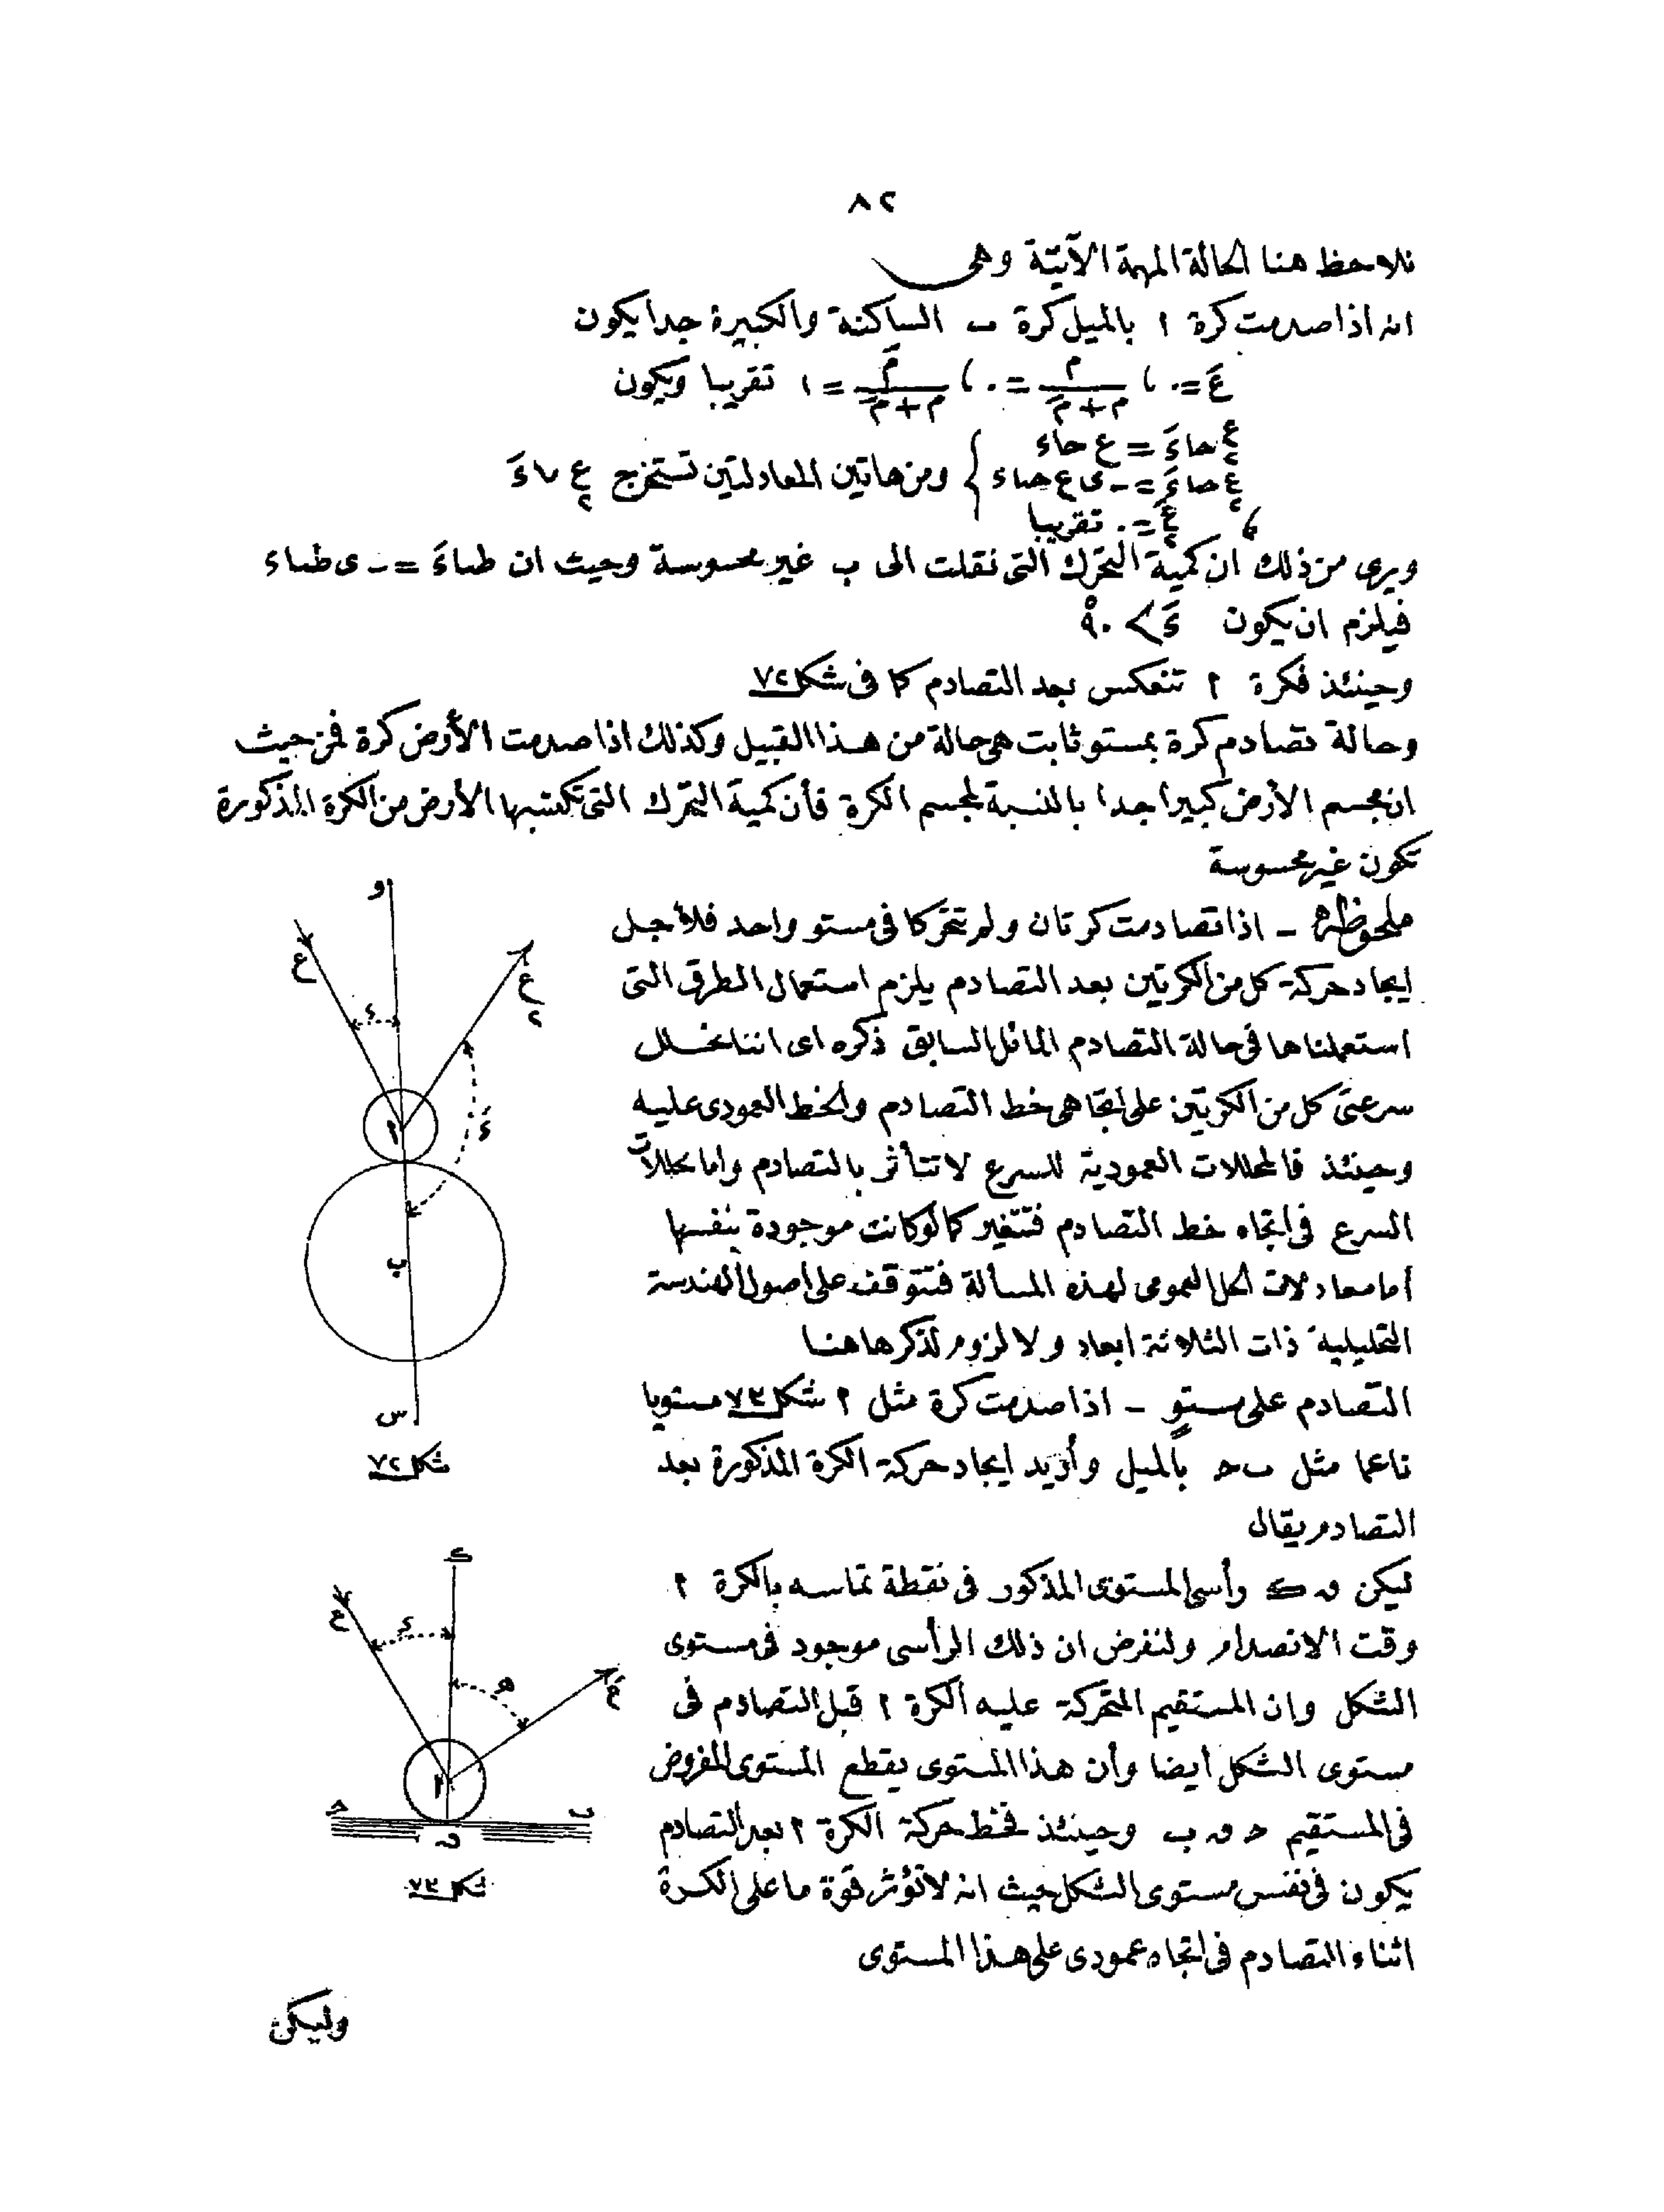 ٨٢
نلاحظ هنا الحالة المهمة الآتية وهى
انه اذا صدمت كرة ا بالميل كرة ب الساكنة والكبيرة جدا يكون
عَ = ٠ ، م / (م + مَ) = ٠ ، مَ / (م + مَ) = ١ تقريبا ويكون
ع٢ حاءَ = ع حاء
ع٢ حتاءَ = - ى ع حتاء } ومن هاتين المعادلتين تستخرج ع٢ ، ءَ
، عَ٢ = ٠ تقريبا
ويرى من ذلك ان كمية التحرك التى نقلت الى ب غير محسوسة وحيث ان طتاءَ = - ى طتاء
فيلزم ان يكون ءَ > ٩٠°
وحينئذ فكرة ا تنعكس بعد التصادم كما فى شكل ٧٢
وحالة تصادم كرة بمستو ثابت هى حالة من هذا القبيل وكذلك اذا صدمت الأرض كرة فمن حيث
ان مجسم الأرض كبيرا جدا بالنسبة لمجسم الكرة فأن كمية التحرك التى تكتسبها الأرض من الكرة المذكورة
تكون غير محسوسة
ملحوظة - اذا تصادمت كرتان ولم تتحركا فى مستو واحد فلأجل
ايجاد حركة كل من الكرتين بعد التصادم يلزم استعمال الطرق التى
استعملناها فى حالة التصادم المائل السابق ذكره اى اننا نحلل
سرعتى كل من الكرتين على اتجاهى خط التصادم والخط العمودى عليه
وحينئذ فالمحللات العمودية للسرع لا تتأثر بالتصادم واما محللات
السرع فى اتجاه خط التصادم فتتغير كما لو كانت موجودة بنفسها
أما معادلات الحل العمومى لهذه المسألة فتتوقف على اصول الهندسة
التحليلية ذات الثلاثة ابعاد ولا لزوم لذكرها هنا
التصادم على مستوٍ - اذا صدمت كرة مثل ا شكل ٧٣ مستويا
ناعما مثل ب ح بالميل وأريد ايجاد حركة الكرة المذكورة بعد
التصادم يقال
ليكن ن ك رأسى المستوى المذكور فى نقطة تماسه بالكرة ا
وقت الانصدام ولنفرض ان ذلك الرأسى موجود فى مستوى
الشكل وان المستقيم المتحركة عليه الكرة ا قبل التصادم فى
مستوى الشكل أيضا وأن هذا المستوى يقطع المستوى المفروض
فى المستقيم ح ن ب وحينئذ فخط حركة الكرة ا بعد التصادم
يكون فى نفس مستوى الشكل حيث انه لا تؤثر قوة ما على الكرة
اثناء التصادم فى اتجاه عمودى على هذا المستوى
وليكن
و
ع
ع٢
ء
ءَ
ا
ب
س
شكل ٧٢
ك
ع
ء
ه
عَ
ا
ح
ب
ن
شكل ٧٣